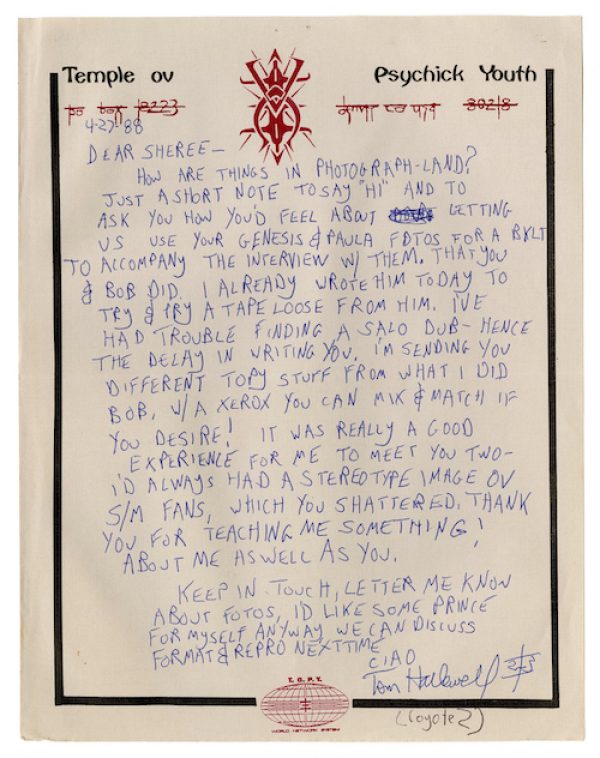 Temple ov Psychick Youth
4-27-88
DEAR SHEREE—
HOW ARE THINGS IN PHOTOGRAPH-LAND?
JUST A SHORT NOTE TO SAY "HI" AND TO
ASK YOU HOW YOU'D FEEL ABOUT LETTING
US USE YOUR GENESIS & PAULA FOTOS FOR A BKLT
TO ACCOMPANY THE INTERVIEW W/ THEM, THAT YOU
& BOB DID. I ALREADY WROTE HIM TODAY TO
TRY & PRY A TAPE LOOSE FROM HIM. I'VE
HAD TROUBLE FINDING A SALO DUB- HENCE
THE DELAY IN WRITING YOU. I'M SENDING YOU
DIFFERENT TOPY STUFF FROM WHAT I DID
BOB, W/A XEROX YOU CAN MIX & MATCH IF
YOU DESIRE! IT WAS REALLY A GOOD
EXPERIENCE FOR ME TO MEET YOU TWO-
I'D ALWAYS HAD A STEREOTYPE IMAGE OV
S/M FANS, WHICH YOU SHATTERED. THANK
YOU FOR TEACHING ME SOMETHING!
ABOUT ME AS WELL AS YOU.
KEEP IN TOUCH, LETTER ME KNOW
ABOUT FOTOS, I'D LIKE SOME PRINCE
FOR MYSELF ANYWAY WE CAN DISCUSS
FORMAT & REPRO NEXT TIME
CIAO
Tom
(Coyote 2)
T.O.P.Y.
WORLD NETWORK SYSTEM